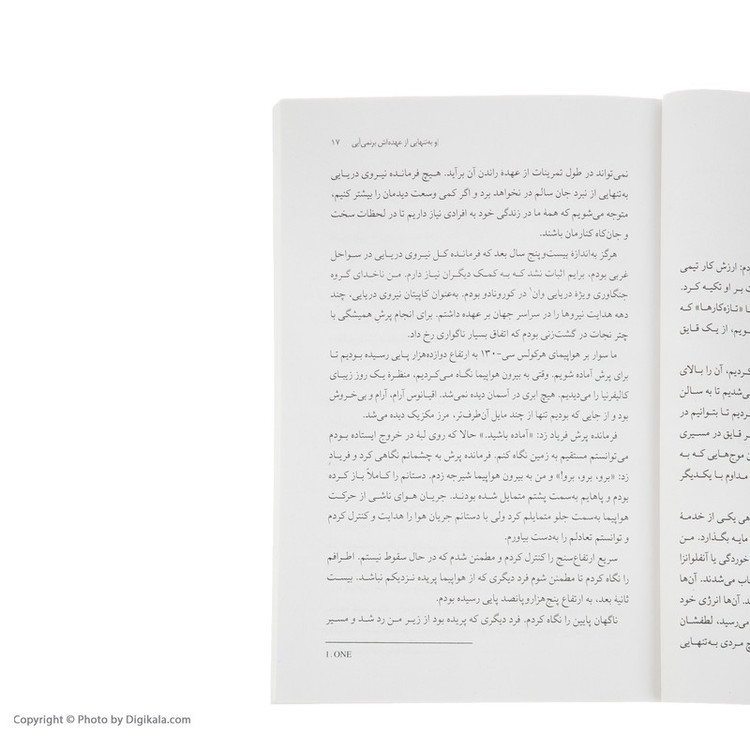 تو به‌تنهایی از عهده‌اش برنمی‌آیی ۱۷
نمی‌تواند در طول تمرینات از عهدهٔ راندن آن برآید. هیچ فرمانده نیروی دریایی
به‌تنهایی از نبرد جان سالم در نخواهد برد و اگر کمی وسعت دیدمان را بیشتر کنیم،
متوجه می‌شویم که همهٔ ما در زندگی خود به افرادی نیاز داریم تا در لحظات سخت
و جان‌کاه کنارمان باشند.
هرگز به‌اندازهٔ بیست‌وپنج سال بعد که فرمانده کل نیروی دریایی در سواحل
غربی بودم، برایم اثبات نشد که به کمک دیگران نیاز دارم. من ناخدای گروه
جنگاوری ویژهٔ دریایی وان۱ در کورونادو بودم. به‌عنوان کاپیتان نیروی دریایی، چند
دهه هدایت نیروها را در سراسر جهان بر عهده داشتم. برای انجام پرش همیشگی با
چتر نجات در گشت‌زنی بودم که اتفاق بسیار ناگواری رخ داد.
ما سوار بر هواپیمای هرکولس سی-۱۳۰ به ارتفاع دوازده‌هزار پایی رسیده بودیم تا
برای پرش آماده شویم. وقتی به بیرون هواپیما نگاه می‌کردیم، منظرهٔ یک روز زیبای
کالیفرنیا را می‌دیدیم. هیچ ابری در آسمان دیده نمی‌شد. اقیانوس آرام، آرام و بی‌خروش
بود و از جایی که بودیم تنها از چند مایل آن‌طرف‌تر، مرز مکزیک دیده می‌شد.
فرمانده پرش فریاد زد: «آماده باشید.» حالا که روی لبهٔ در خروج ایستاده بودم
می‌توانستم مستقیم به زمین نگاه کنم. فرمانده پرش به چشمانم نگاهی کرد و فریادِ
زد: «برو، برو، برو!» و من به بیرون هواپیما شیرجه زدم. دستانم را کاملاً باز کرده
بودم و پاهایم به‌سمت پشتم متمایل شده بودند. جریان هوای ناشی از حرکت
هواپیما به‌سمت جلو متمایلم کرد ولی با دستانم جریان هوا را هدایت و کنترل کردم
و توانستم تعادلم را به‌دست بیاورم.
سریع ارتفاع‌سنج را کنترل کردم و مطمئن شدم که در حال سقوط نیستم. اطرافم
را نگاه کردم تا مطمئن شوم فرد دیگری که از هواپیما پریده نزدیکم نباشد. بیست
ثانیهٔ بعد، به ارتفاع پنج‌هزاروپانصد پایی رسیده بودم.
ناگهان پایین را نگاه کردم. فرد دیگری که پریده بود از زیر من رد شد و مسیر
1. ONE
دم: ارزش کار تیمی
ت بر او تکیه کرد.
«تازه‌کارها» که
ویم، از یک قایق
کردیم، آن را بالای
ی‌شدیم تا به سالن
ردیم تا بتوانیم در
ر قایق در مسیری
ن موج‌هایی که به
مداوم با یکدیگر
هی یکی از خدمهٔ
مایه بگذارد. من
خوردگی یا آنفلوانزا
اب می‌شدند. آن‌ها
د. آن‌ها انرژی خود
می‌رسید، لطفشان
چ مردی به‌تنهایی
Copyright © Photo by Digikala.com